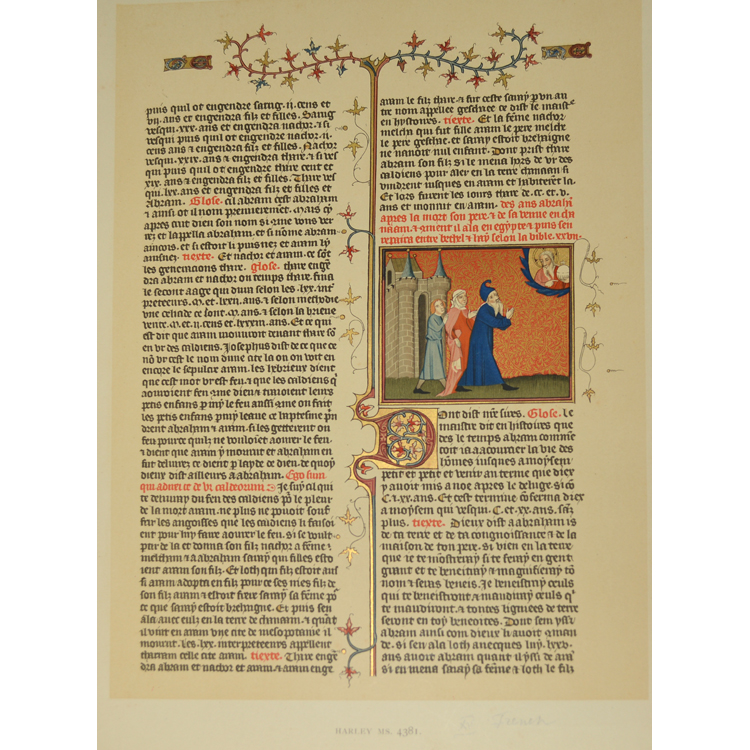 puis quil ot engendre sarug .ii. cens et
vii. ans et engendra filz et filles. Sarug
vesqui .xxx. ans et engendra nachor. et si
vesqui puis quil ot engendre nachor .ii.
cens ans et engendra filz et filles. Nachor
vesqui .xxix. ans et engendra thare. et si ves
qui puis quil ot engendre thare cent et
xix. ans et engendra filz et filles. Thare ves
qui .lxx. ans et engendra filz et filles et
Abram. Glose. cil abram cest abraham
et ainsi ot il nom premierement. Mais
apres aut dieu son nom si
rez et lapella abraham. et si nome abram
aincois. et si estoit il puisnez. et aram li
aisnez. tiexte. Et nachor et aram. ce sont
les generacions thare. glose. thare engen
dra abram et nachor on temps thare, fina
le secont aage qui dura selon les .lxx. int
preteurs .M. et .lxxii. ans. et selon methodie
vne celiade ce sont .M. ans. et selon la brieue
verite .CC. et .ii. cens et .lxxxm. ans. Et ce qui
est dit que aram mourut deuant thare so
en vr des caldiens. Josephus dist de ce que ce
nō vr cest le nom dune cite la on on voit en
encore le sepulcre aram. les hebrieux dient
que cest mot vr est feu. et que les caldiens q
aouroient feu dient et
petis enfans
les petis enfans
drent abraham et aram. si les getterent on
feu pource quilz ne vouloiēt aourer le feu.
et dient que aram y mourut et abraham en
fut deliurez. ce dient par layde ce dieu. de quoy
dieux dist ailleurs a abraham. Ego sum
qui aduei te de vr caldeorum Je suy al qui
te deliuray du feu des caldiens por le pleur
de la mort aram. ne plus ne pouoit souf
frir les angoisses que les caldiens li faisoi
ent pour luy faire aourer le feu. si se voult
ptir de la et donna son filz nachor a feme
melcham et a abraham saray qui filles esto
ient aram son filz. Et loth qui filz estoit aus
si aram adopta en filz pour ce ses mes filz de
son filz aram. et estoit frere saray sa feme pō
ce que saray estoit brehaigne. Et puis sen
ala auec eulx en la terre de chanaam. et quāt
il vint en aram vne cite de mesopotame il
mourut. les .lxx. interpreteurs appellent
charram celle cite aram. tiexte. Thare enge
dra abram et nachor et aram. et aram enge
aram le filz thare. et fut ceste saray par vn au
tre nom appellee geschae ce dist le maistre
en hystoires. tiexte. Et la feme nachor
melcha qui fut fille aram le pere melche
le pere geschie. et saray estoit brehaigne
ne nauoit nul enfant. Dont prist thare
abram son filz. si le mena hors de vr des
caldiens pour aler en la terre chanaam si
vindrent iusques en aram et habiterent la.
Et lors furent les iours thare de .CC. et .v.
ans et mourut en aram. des ans abrahā
apres la mort son pere. et de sa venue en cha
naam. et cōment il ala en egypte. et puis sen
repaira entre bethel et hay selon la bible. xxvii.
Dont dist nre sires. Glose. le
maistre dit en histoires que
des le temps abram comme
coit ia a acourcir la vie des
hōmes iusques a moysem
petit et petit et venir au terme que dieu
y auoit mis a noe apres le deluge. si cō
C. et .xx. ans. Et cest termine cōferma diex
a moysem qui vesqui .C. et .xx. ans. sanz
plus. tiexte. Dieux dist a abraham is
de ta terre et de ta congnoissance et de la
maison de ton pere. si vien en la terre
que ie te mōsterray si te feray en gent
grant et te beneistray et magnifieray tō
nom et seras beneis. Je beneistray ceulx
qui te beneistront et maudiray ceulx q̄
te maudiront. et toutes lignees de terre
seront en toy beneoites. Dont sem yssi
abram ainsi com dieux li auoit cōman
de. si sen ala loth auecques luy. lxxv.
ans auoit abram quant il yssi de arā
si en mena saray sa feme et loth le filz
HARLEY MS. 4381.
French